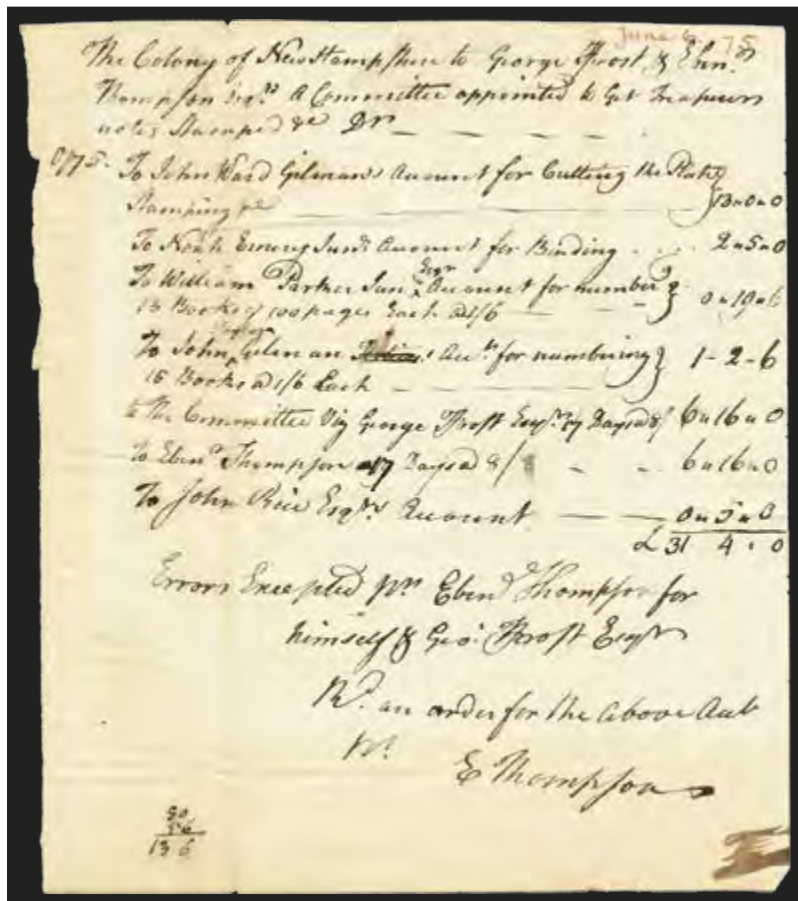 June 6. 75
The Colony of New Hampshire to George Frost, & Ebenr.
Thompson Esqrs. A Committee appointed to Get Treasurers
notes Stamped &c Dr
1775. To John Ward Gilmans Account for Cutting the Plates
Stamping &c 13"0"0
To Noah Emery Junr. Account for Binding 2"5"0
To William Parker Jun Esqr Account for number
13 Books of 100 pages Each a 1/6 0"19"6
To John Gilman Acts. for numbering
15 Books a 1/6 Each 1-2-6
to The Committee Viz George Frost Esqr. 17 Days a 8/ 6"16"0
To Ebenr. Thompson 17 Days a 8/ 6"16"0
To John Rice Esqrs Account 0"5"0
£ 31 4 : 0
Errors Excepted pr. Ebenr Thompson for
himself & Geo: Frost Esqr
Rd. an order for the above
pr.
E Thompson
13 6